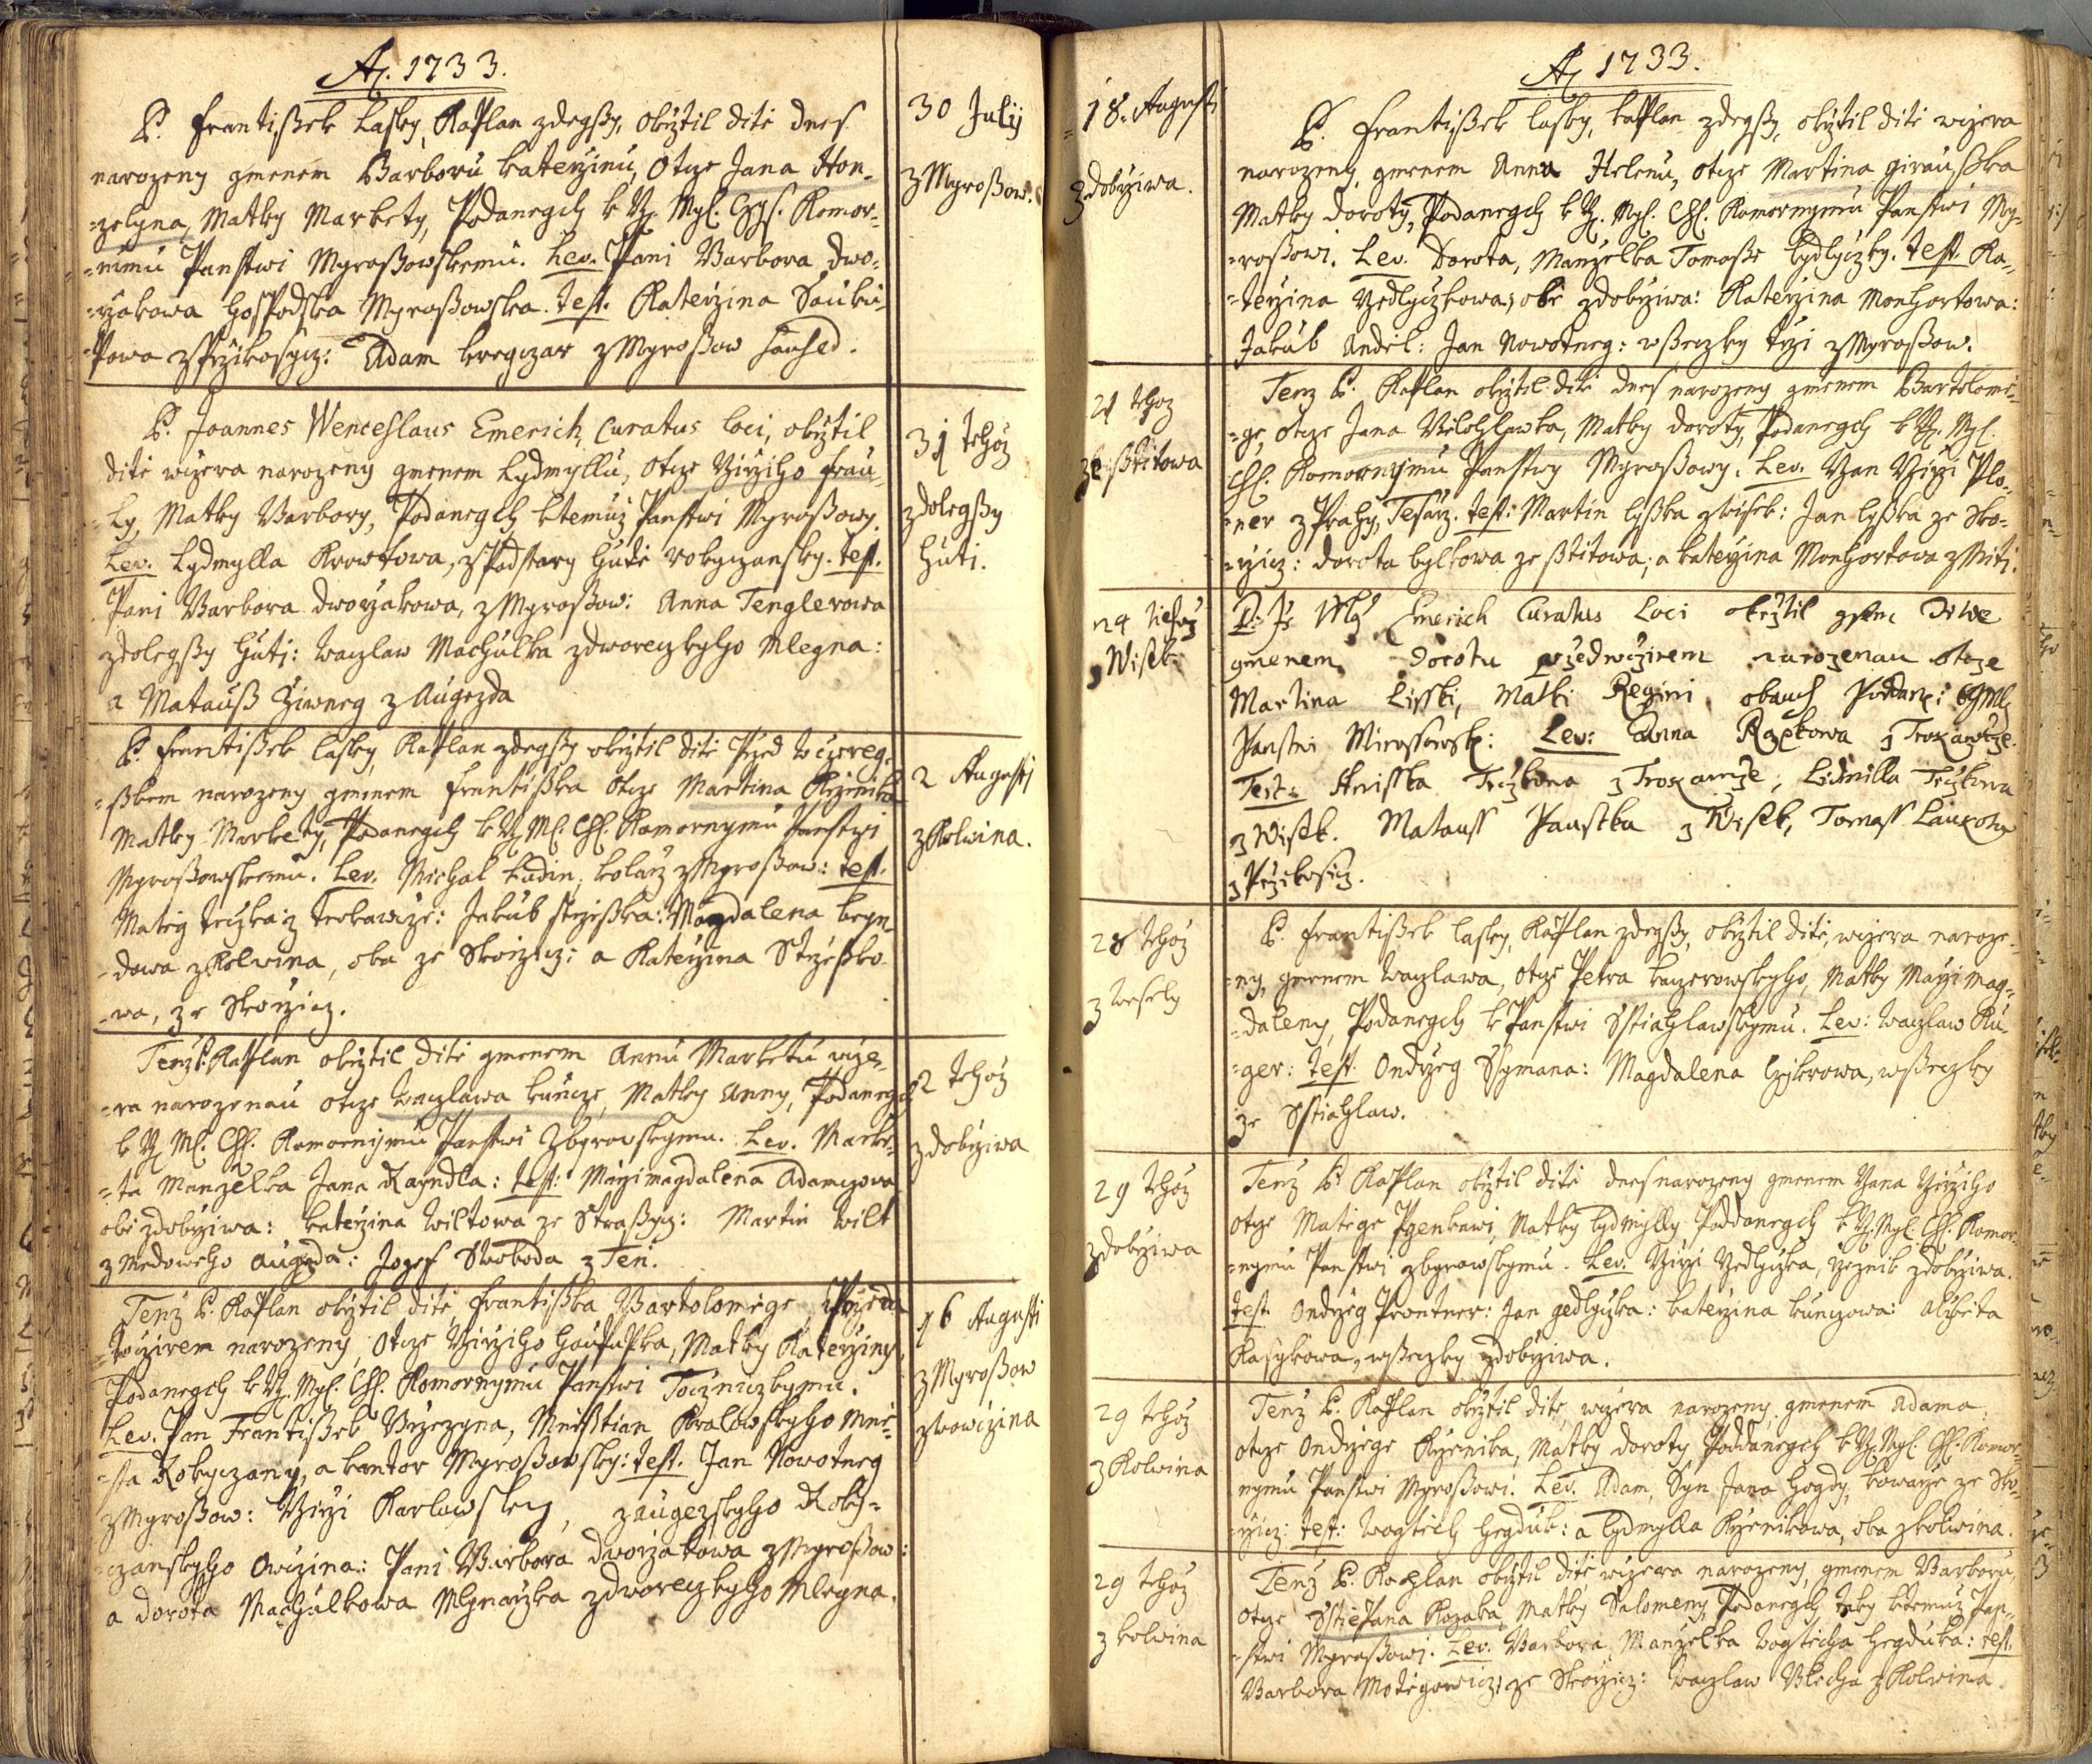 A. 1733.
P. Frantißek Lasky, Kaplan zdegßy, okřztil ditě dnes
narozeny gmenem Barboru kateřzinu, Otcze Jana Hon-
-zelyna, Matky Markety, Podanegch k Mgl. Czys. Komor-
-nimu Panstwi Myroßowskemu. Lev. Pani Barbora dwo-
-rzakowa hospodska Myroßowska. test. Kateřzina
zPrzikosycz: Adam kregczar zMyroßow saused.
30 Julij
zMyroßow.
P. Joannes Wenceslaus Emerich, Curatus loci, okřztil
ditě wczera narozeny gmenem Lydmyllu, otcze Girziho frau-
-ky, Matky Barbory, Podanegch ktemuz Panstwi Myroßowy.
Lev. Lydmylla zPodstary huti rokyczansky. test.
Pani Barbora dworzakowa, zMyroßow: Anna Tenglerowa
zdolegßy huti: Waczlaw Machulka zdworeczkyho Mlegna:
a Matauß Ziwneg z Augezda
31 tehoz
zdolegßy
huti.
P. Frantißek lasky, Kaplan zdegßy okřztil ditě Przed wczireg-
-ßkem narozeny gmenem Frantißka otcze Martina Krzenika
Matky Markety, Podanegch k Ml. CH. Komornymu Panstwi
Myroßowskemu. Lev. Michal kudin, kolarz zMyroßow: test.
Mateg treyzka z trokawcze: Jakub strzeßka: Magdalena
-dowa zKolwina, oba ze Skorzicz: a Kateřzina Strzeßko-
-wa, ze Skorzicz.
2 Augusti
zKolwina.
Tenz P. Kaplan okřztil ditě gmenem Annu Marketu wcze-
-ra narozenau otcze waczlawa kuncze, Matky Anny, Podanegch
k Ml. CH. Komornymu Panstwi Zbyrowskymu. Lev. Marke-
-ta Manzelka Jana Rayndla: test: Marzi magdalena Adamczowa
obě zdobrziwa: kateřzina wiltowa ze Straßycz: Martin wilt
z Medoweho augezda: Jozef Swoboda z Těn.
12 tehoz
zdobrziwa
Tenz P. Kaplan okřztil ditě, frantißka Bartoloměge, Przed
wczirem narozeny, Otcze Girziho, Matky Kateřziny,
Podanegch k Mgl. CH. Komornymu Panstwi Tocznickymu.
Lev. Pan Frantißek Brzezyna, Měßtian Kralowskyho Mně-
-sta Rokyczany, a kantor Myroßowsky: test. Jan Nowotneg
zMyroßow: Girzi Karlowsky, zaugezskyho Roky-
-czanskyho owczina: Pani Barbora dworzakowa zMyroßow:
a dorota Machulkowa Mlynarzka zdworeczkyho Mlegna.
16 Augusti
zMyroßow
zwowczina
A. 1733.
18. Augusti
zdobrziwa.
P. Frantißek lasky, kaplan zdegßy, okřztil ditě wczera
narozeny, gmenem Anna Helenu, otcze Martina giraußka
Matky doroty, Podanegch k Mgl. CH. Komornymu Panstwi My-
-roßowi. Lev. Dorota, Manzelka Tomaße. test. Ka-
-teřzina Gedlyczkowa; obě zdobrziwa: Kateřzina Monhartowa:
Jakub Anděl: Jan Nowotneg: wßeczky trzi zMyroßow.
21 tehoz
ze ßtitowa
Tenz P. Kaplan okřztil ditě dnes narozeny gmenem Bartolomě-
-ge, otcze Jana Bělohlawka, Matky doroty, Podanegch k Mgl.
CH. Komornymu Panstwy Myroßowy. Lev. Jan Girzi Plo-
-ner zPrahy, Tesarz. test: Martin lyßka zwisek: Jan lyßka ze Sko-
-rzicz: dorota bylkowa ze ßtitowa; a kateřzina Monhortowa zMiti.
24 tehoz
z Wisek.
Emerich Curatus Loci okrztil
gmenem Dorotu przedwczirem narozenau otcze
Martina Lisski, Matki Regini obauch Poddan:
Panstwi Mirossowsk: Lev: Anna Raczkowa z Trokawcze.
Test: Trczkowa z Trokawcze, Lidmilla Trczkowa
z Wisek. Matauss Paustka z Wisek, Tomass
z Przikosicz.
28 tehoz
z Wesely
P. Frantißek lasky, Kaplan zdegßy, okřztil ditě, wczera naroze-
-ny, gmenem waczlawa, otcze Petra kaczerowskyho, Matky Marzi mag-
-daleny, Podanegch k Panstwi Sstiahlawskymu. Lev: waczlaw Ku-
-ger: test. Ondrzeg Ssymana: Magdalena, wßeczky
ze Sstiahlaw.
29 tehoz
zdobrziwa
Tenz P. Kaplan okřztil ditě dnes narozeny gmenem Jana Girziho
otcze Matěge, Matky lydmylly Poddanegch k Mgl. CH. Komor-
-nymu Panstwi zbyrowskymu. Lev. Girzi Gedlyczka, rzeznik zdobrziwa.
test. Ondrzeg Prontner: Jan gedlyczka: kateřzina kunczowa: alzběta
Kasykowa, wßeczky zdobrziwa.
29 tehoz
z Kolwina
Tenz P. Kaplan okřztil ditě, wczera narozeny, gmenem Adama,
otcze Ondrzege Krzenika, Matky doroty Poddanegch k Mgl. CH. Komor-
nymu Panstwi Myroßowi. Lev. Adam, Syn Jana hogdy, kowarze ze Sko-
-rzicz: test: wogtěch hegduk: a lydmylla Krzenikowa, oba zkolwina.
29 tehoz
z kolwina
Tenz P. Kaplan okřztil ditě wczera narozeny, gmenem Barboru,
otcze Sstěpana Kozaka, Matky Salomeny, Podanegch taky ktemuz Pan-
-stwi Myroßowi. Lev. Barbora Manzelka wogtěcha hegduka: test.
Barbora ze Skorzicz: waczlaw Blecha z Kolwina.